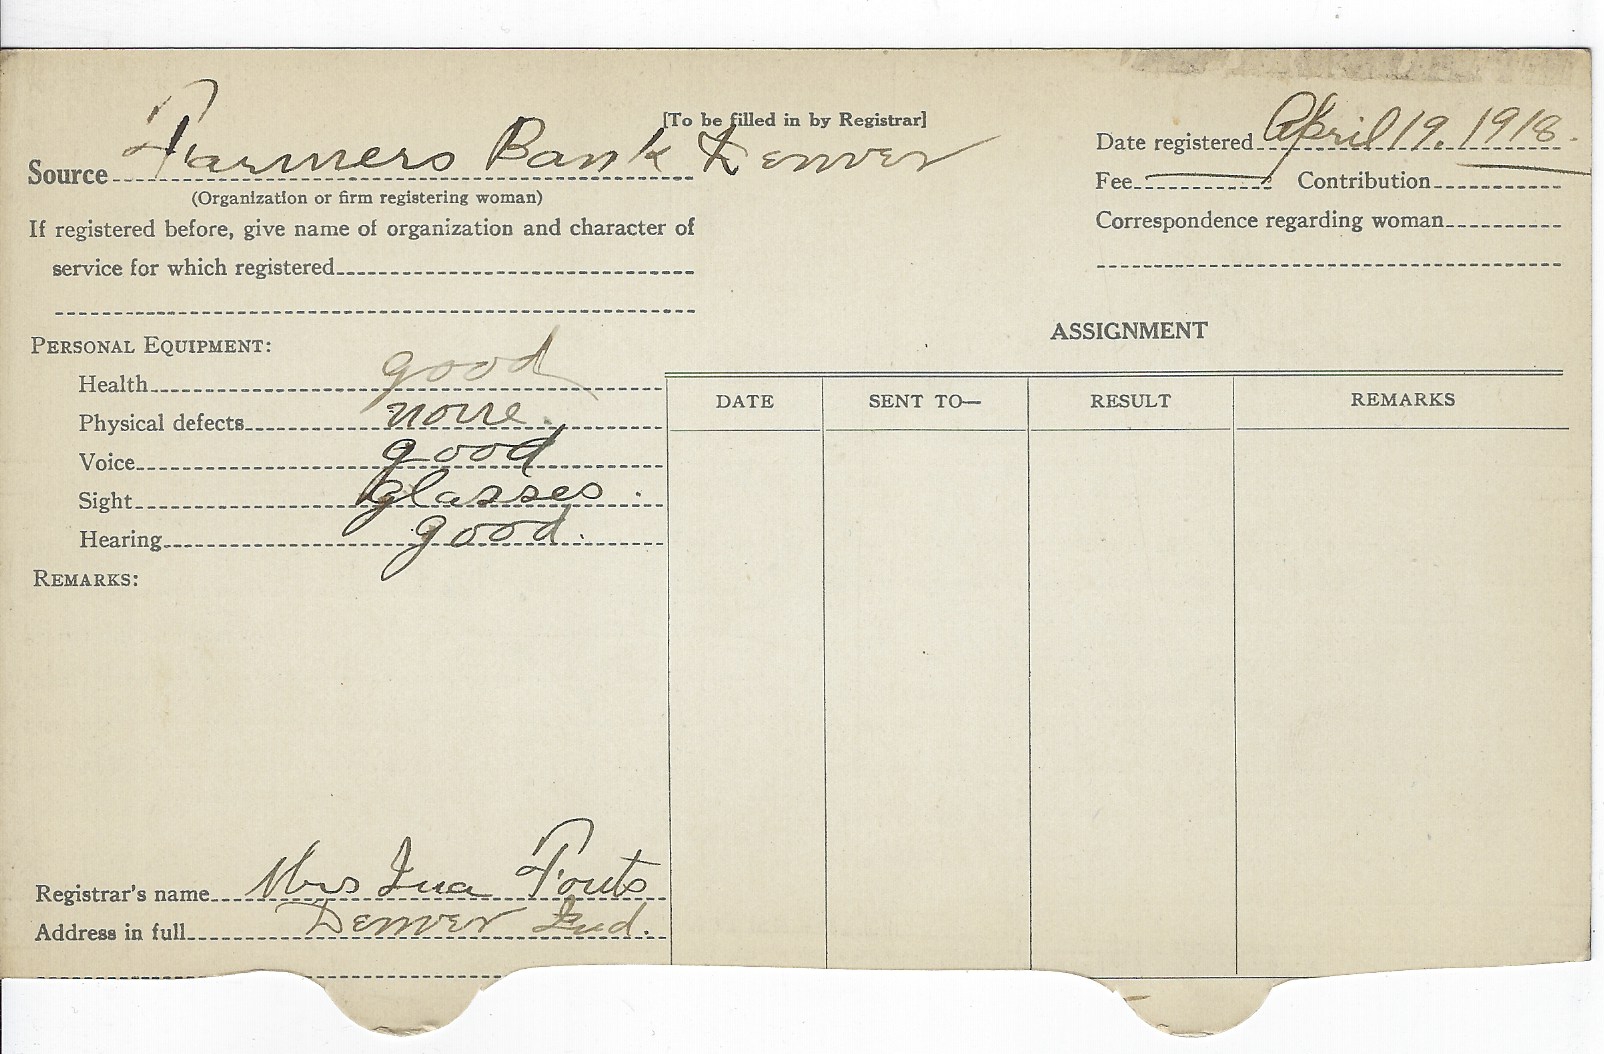 [To be filled in by Registrar]
Source Farmers Bank Denver
(Organization or firm registering woman)
If registered before, give name of organization and character of
service for which registered
Date registered April 19. 1918.
Fee Contribution
Correspondence regarding woman
PERSONAL EQUIPMENT:
Health good
Physical defects none.
Voice good
Sight glasses.
Hearing good.
REMARKS:
Registrar's name Mrs Ina Fouts
Address in full Denver Ind.
ASSIGNMENT
DATE SENT TO— RESULT REMARKS